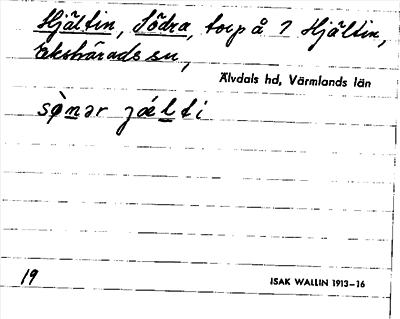 Hjältin, Södra, torp å ? Hjältin,
Ekshärads sn,
Älvdals hd, Värmlands län
sø̀nər jǽlti
19
ISAK WALLIN 1913–16